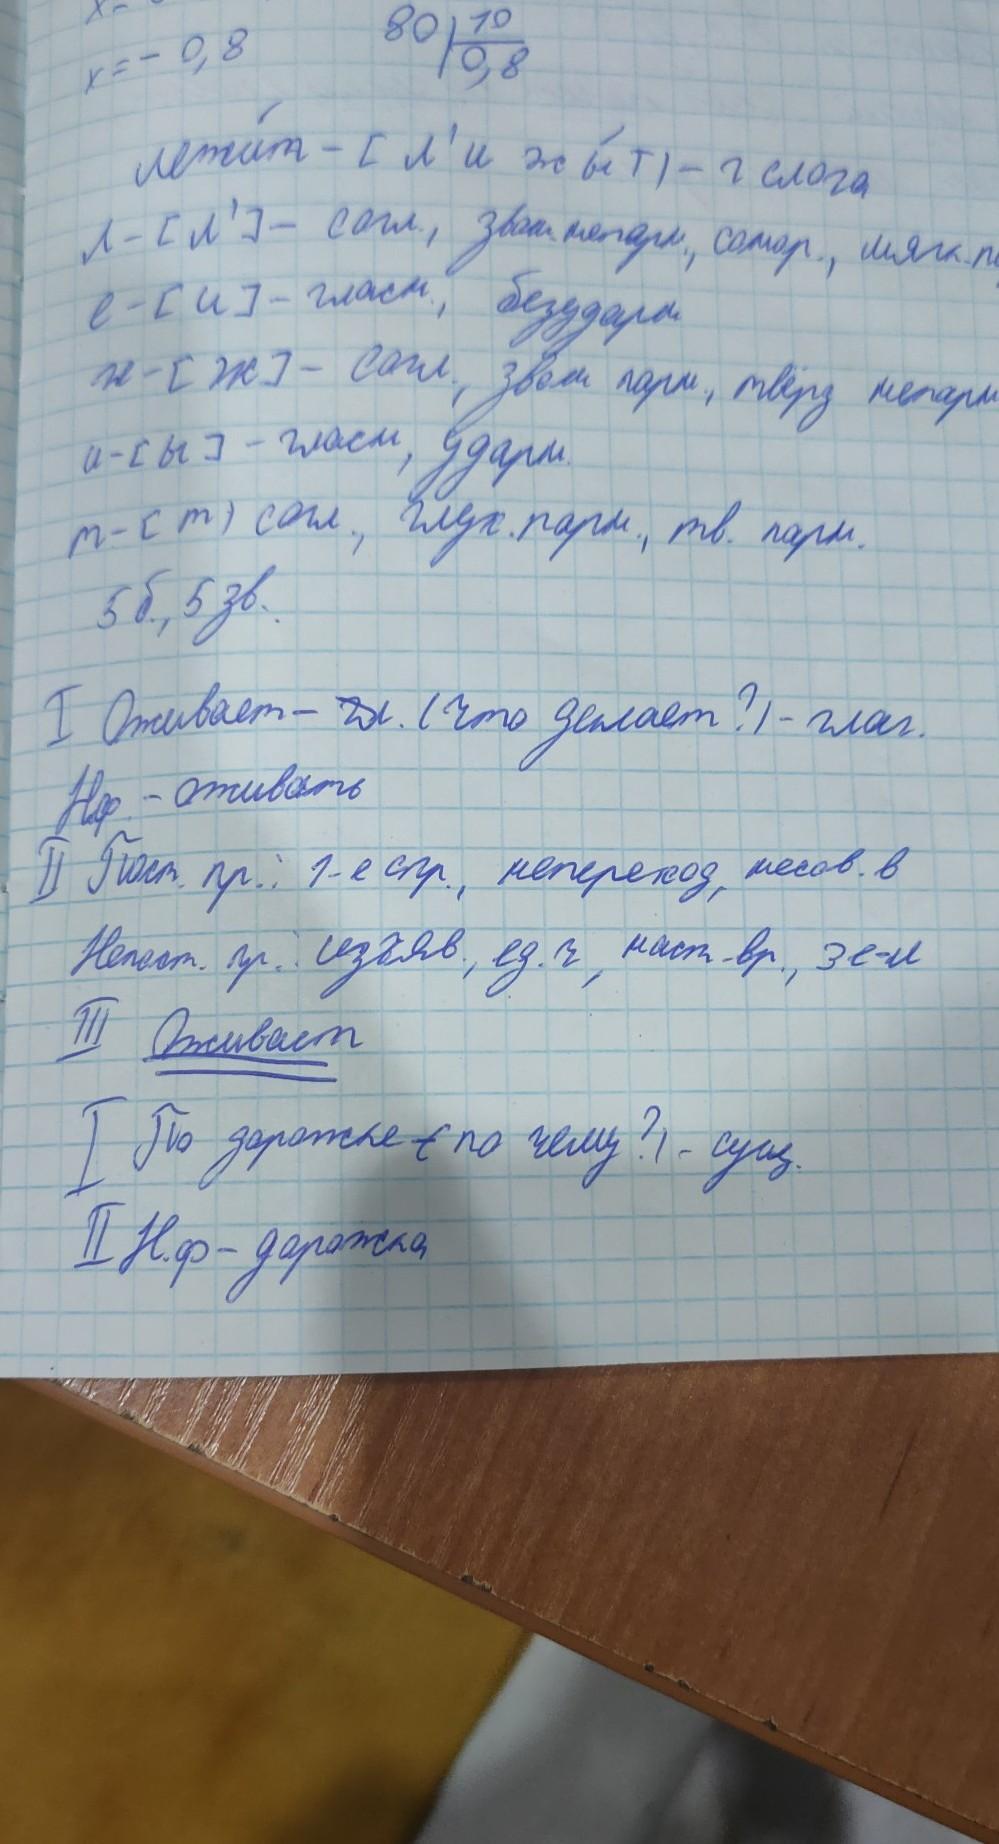 x = - 0,8
80 | 10
0,8
лежит - [ л' и ж ы́ т ) - 2 слога
л - [ л' ] - согл., звон. непарн., сонор., мягк. п
е - [ и ] - гласн., безударн
ж - [ ж ] - согл., звон парн., твёрд непарн
и - [ ы ] - гласн, ударн.
т - [ т ) согл., глух. парн., тв. парн.
5 б., 5 зв.
I Оживает - (что делает?) - глаг.
Н.ф. - оживать
II Пост. пр.: 1-е спр., непереход, несов. в
Непост. пр.: изъяв., ед. ч, наст. вр., 3 е-л
III Оживает
I По дорожке - ( по чему? ) - сущ.
II Н.ф - дорожка